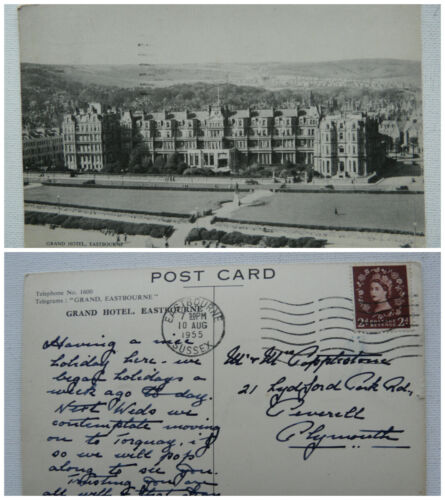 GRAND HOTEL, EASTBOURNE
POST CARD
Telephone No. 1600
Telegrams: "GRAND, EASTBOURNE"
GRAND HOTEL, EASTBOURNE
EASTBOURNE
7 PM
10 AUG
1955
SUSSEX
2d POSTAGE REVENUE 2d
Having a nice
holiday here, we
began holidays a
week ago to day.
Next Weds we
contemplate moving
on to Torquay, if
so we will pop
along to see you.
Trusting you are
all well &
Mr & Mrs Copplestone
21 Lydford Park Rd,
Peverell
Plymouth